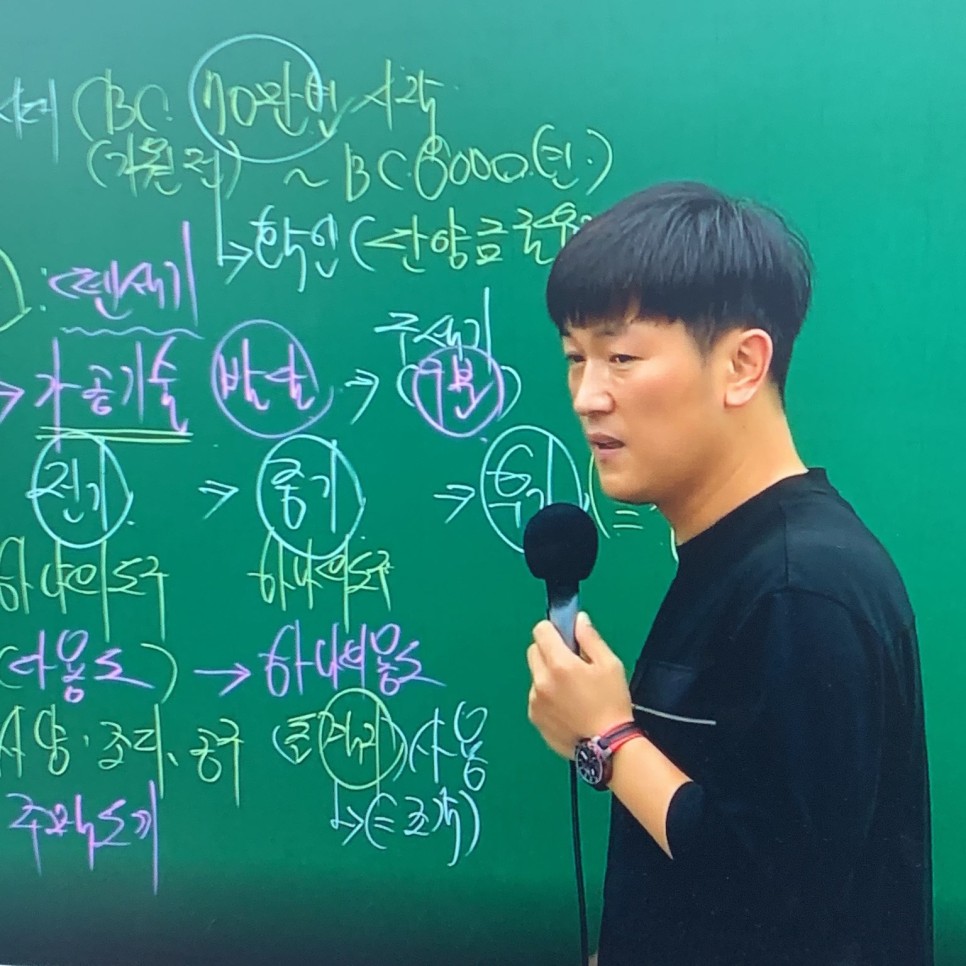 시대 (BC. 70만년 시작
(기원전) ~ BC. 8000년.)
→ 확인 (<단양 금굴
): <뗀석기
→ 가공기술 발달 → 주먹기
전기 → 중기 → 후기 (=
하나의 도구 하나의 도구
(다용도) → 하나의 용도
사냥·조리·공구 (돌격지) 사용
주먹도끼 → (=조각)